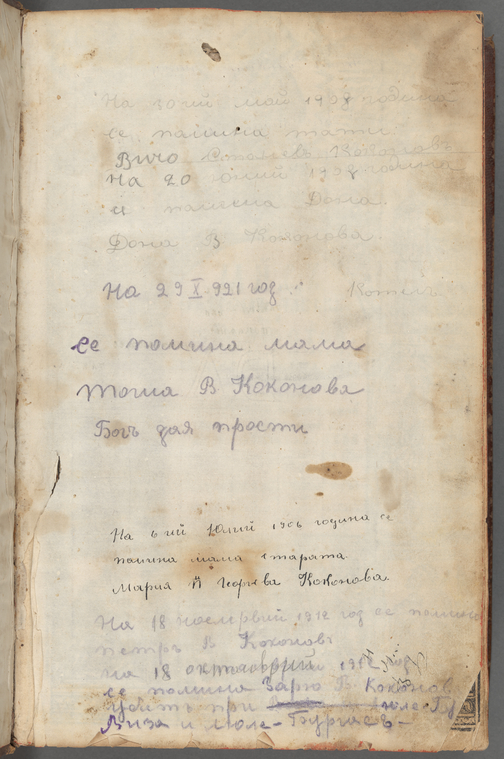 На 30 ий май 1908 година
се помина тати
Вичо Коконовъ
На 20 1908 помина
и Дона
Дона В Коконова.
На 29 X 921 год. Котелъ
се помина мама
Тоша В Коконова
Богъ дая прости
На 6 ий Юлий 1906 година се
помина мама старата
Мария Й Георгева Коконова.
На 18 ноемврий 1912 год се помина
петръ В Коконовъ
на 18 октомврий 1912 год
се помина Зарю В Коконов
убитъ при Люле-Бу
Виза и Люле-Бургасъ-